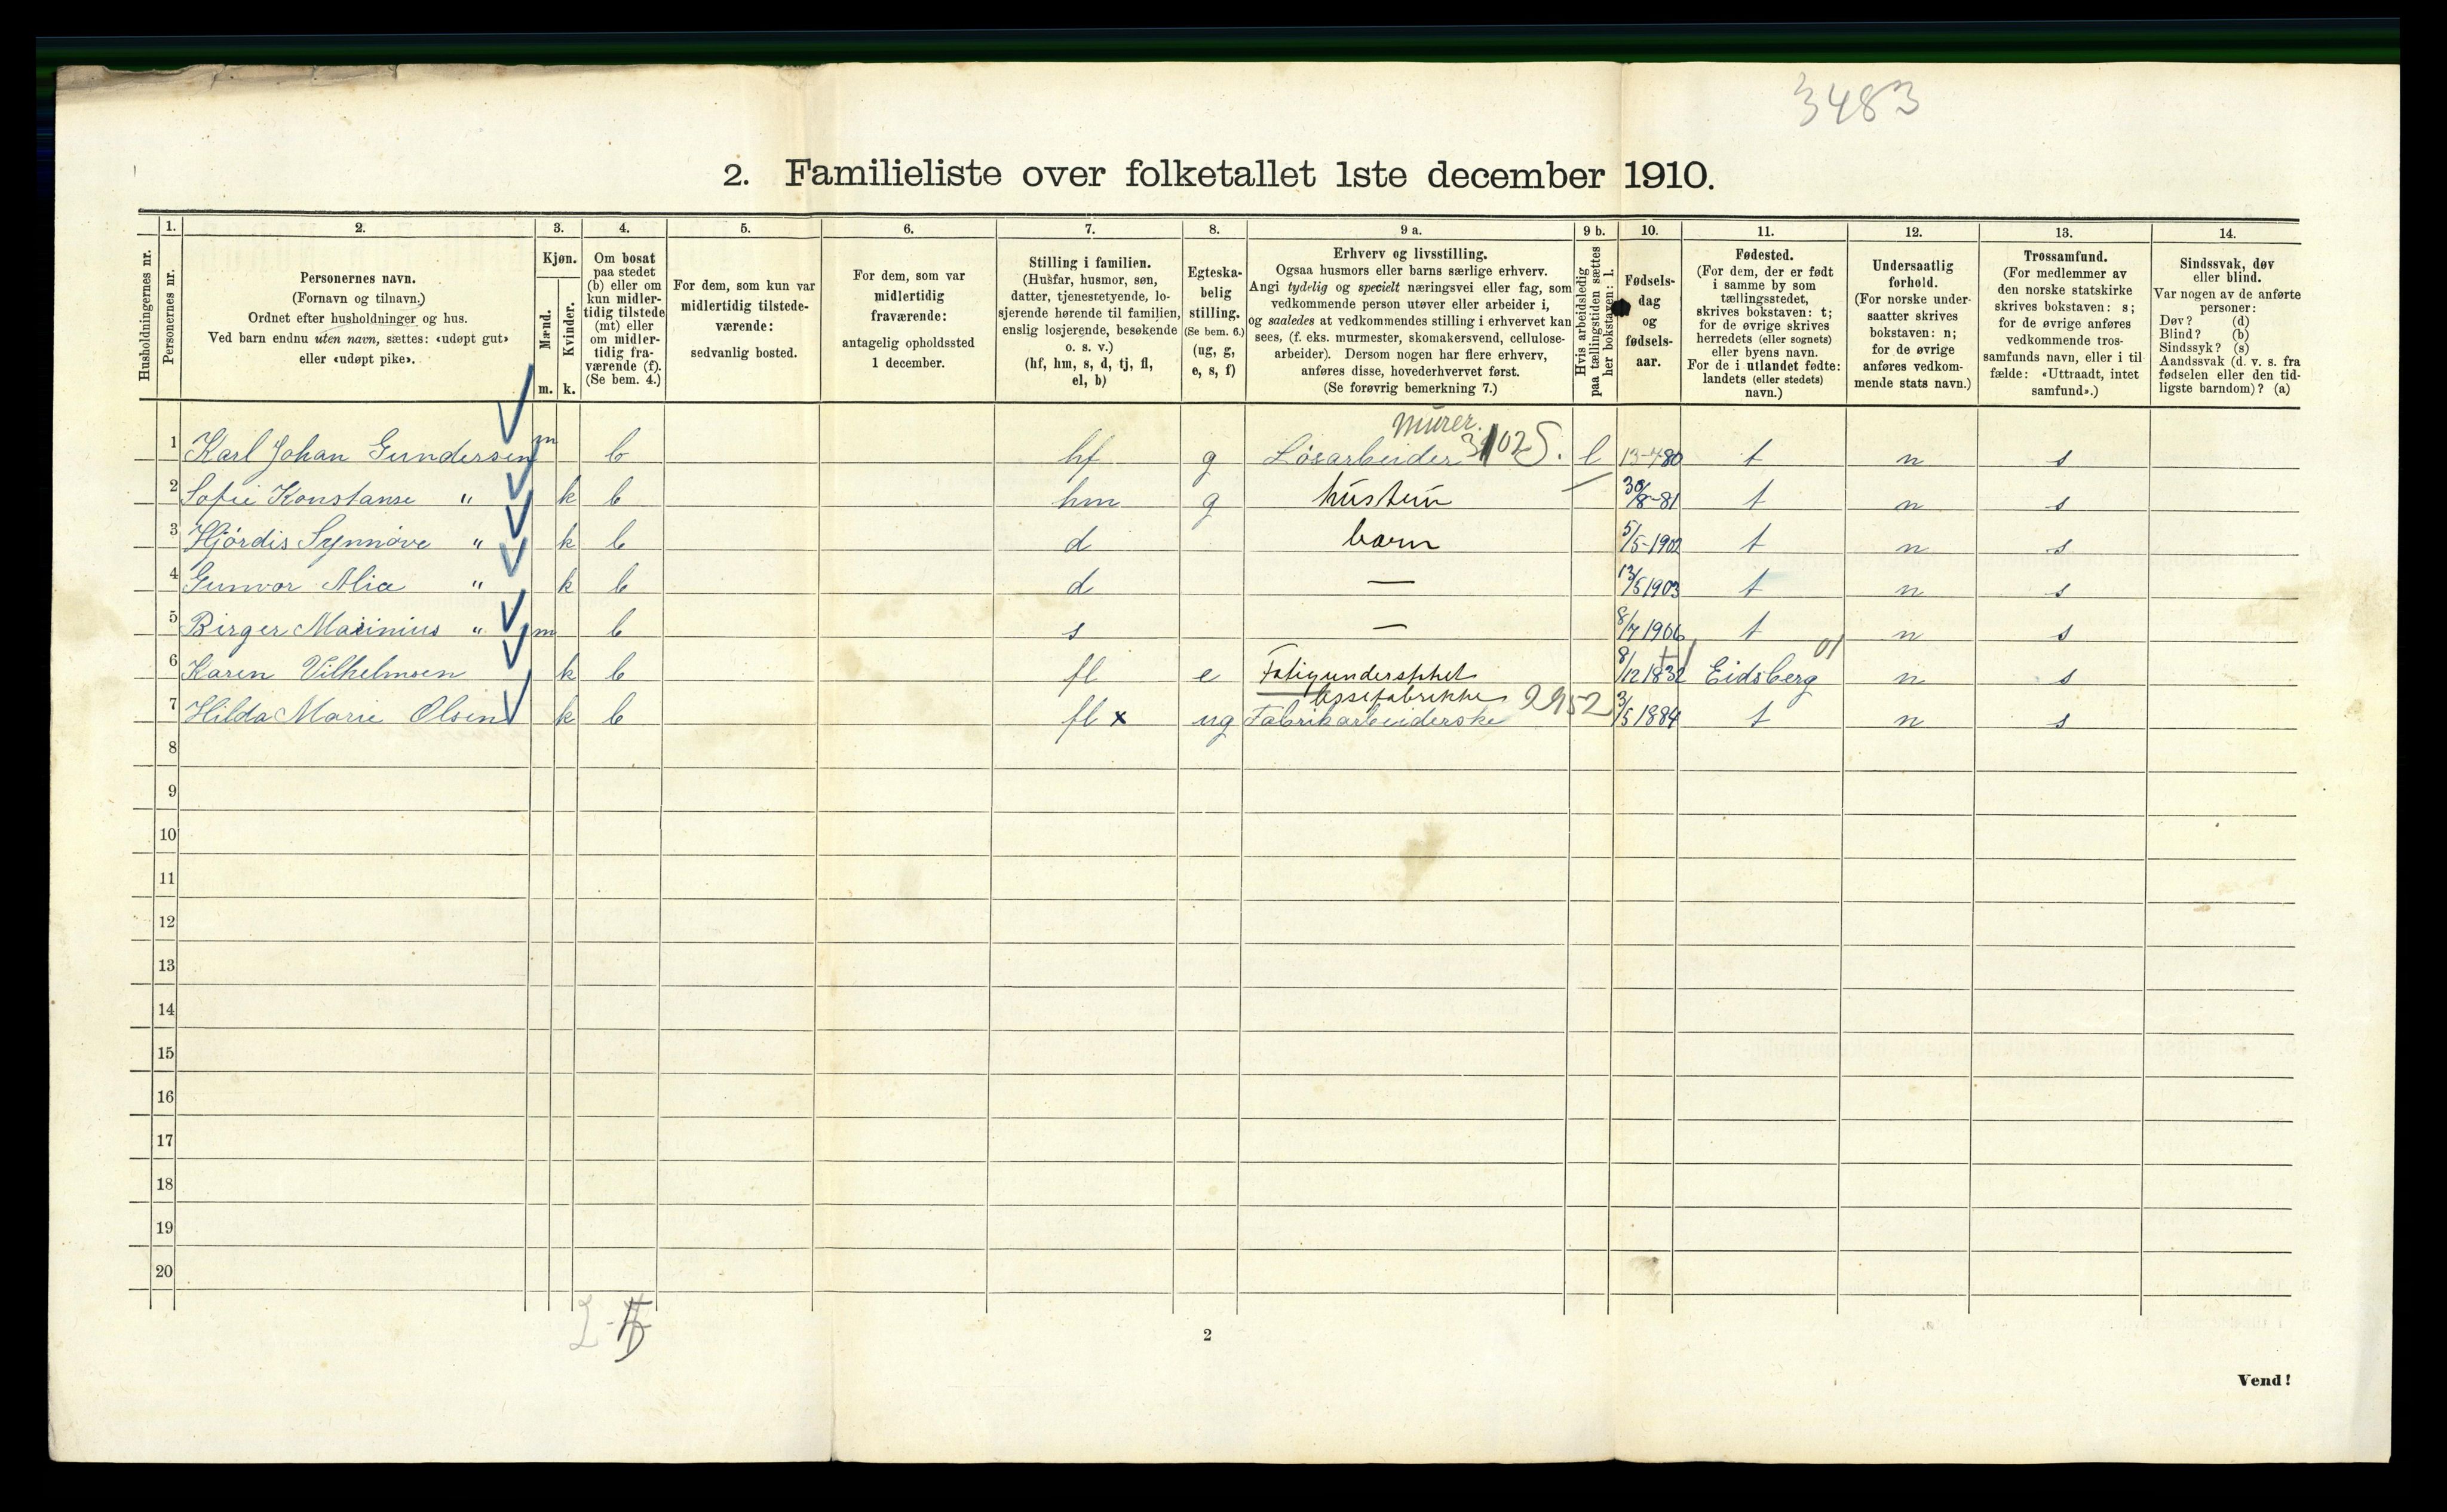 3483
2. Familieliste over folketallet 1ste december 1910.
Husholdningernes nr.
1.
Personernes nr.
2.
Personernes navn.
(Fornavn og tilnavn.)
Ordnet efter husholdninger og hus.
Ved barn endnu uten navn, sættes: «udøpt gut»
eller «udøpt pike».
3.
Kjøn.
Mænd.
Kvinder.
m. k.
4.
Om bosat
paa stedet
(b) eller om
kun midler-
tidig tilstede
(mt) eller
om midler-
tidig fra-
værende (f).
(Se bem. 4.)
5.
For dem, som kun var
midlertidig tilstede-
værende:
sedvanlig bosted.
6.
For dem, som var
midlertidig
fraværende:
antagelig opholdssted
1 december.
7.
Stilling i familien.
(Husfar, husmor, søn,
datter, tjenestetyende, lo-
sjerende hørende til familien,
enslig losjerende, besøkende
o. s. v.)
(hf, hm, s, d, tj, fl,
el, b)
8.
Egteska-
belig
stilling.
(Se bem. 6.)
(ug, g,
e, s, f)
9 a.
Erhverv og livsstilling.
Ogsaa husmors eller barns særlige erhverv.
Angi tydelig og specielt næringsvei eller fag, som
vedkommende person utøver eller arbeider i,
og saaledes at vedkommendes stilling i erhvervet kan
sees, (f. eks. murmester, skomakersvend, cellulose-
arbeider). Dersom nogen har flere erhverv,
anføres disse, hovederhvervet først.
(Se forøvrig bemerkning 7.)
9 b.
Hvis arbeidsledig
paa tællingstiden sættes
her bokstaven: l.
10.
Fødsels-
dag
og
fødsels-
aar.
11.
Fødested.
(For dem, der er født
i samme by som
tællingsstedet,
skrives bokstaven: t;
for de øvrige skrives
herredets (eller sognets)
eller byens navn.
For de i utlandet fødte:
landets (eller stedets)
navn.)
12.
Undersaatlig
forhold.
(For norske under-
saatter skrives
bokstaven: n;
for de øvrige
anføres vedkom-
mende stats navn.)
13.
Trossamfund.
(For medlemmer av
den norske statskirke
skrives bokstaven: s;
for de øvrige anføres
vedkommende tros-
samfunds navn, eller i til-
fælde: «Uttraadt, intet
samfund».)
14.
Sindssvak, døv
eller blind.
Var nogen av de anførte
personer:
Døv? (d)
Blind? (b)
Sindssyk? (s)
Aandssvak (d. v. s. fra
fødselen eller den tid-
ligste barndom)? (a)
Murer.
1 Karl Johan Gundersen m b hf g Løsarbeider 3102 S. l 13-4 80 t n s
2 Sofie Konstanse " k b hm g hustru 30/8-81 t n s
3 Hjørdis Synnøve " k b d barn 5/5-1902 t n s
4 Gunvor Alice " k b d — 13/5 1903 t n s
5 Birger Marinius " m b s — 8/7 1906 t n s
01
6 Karen Vilhelmsen k b fl e Fatigunderstøttet 8/12 1832 Eidsberg n s
7 Hilda Marie Olsen k b fl x ug Fabrikarbeiderske 2952 3/5 1884 t n s
8
9
10
11
12
13
14
15
16
17
18
19
20
2-5
2
Vend!